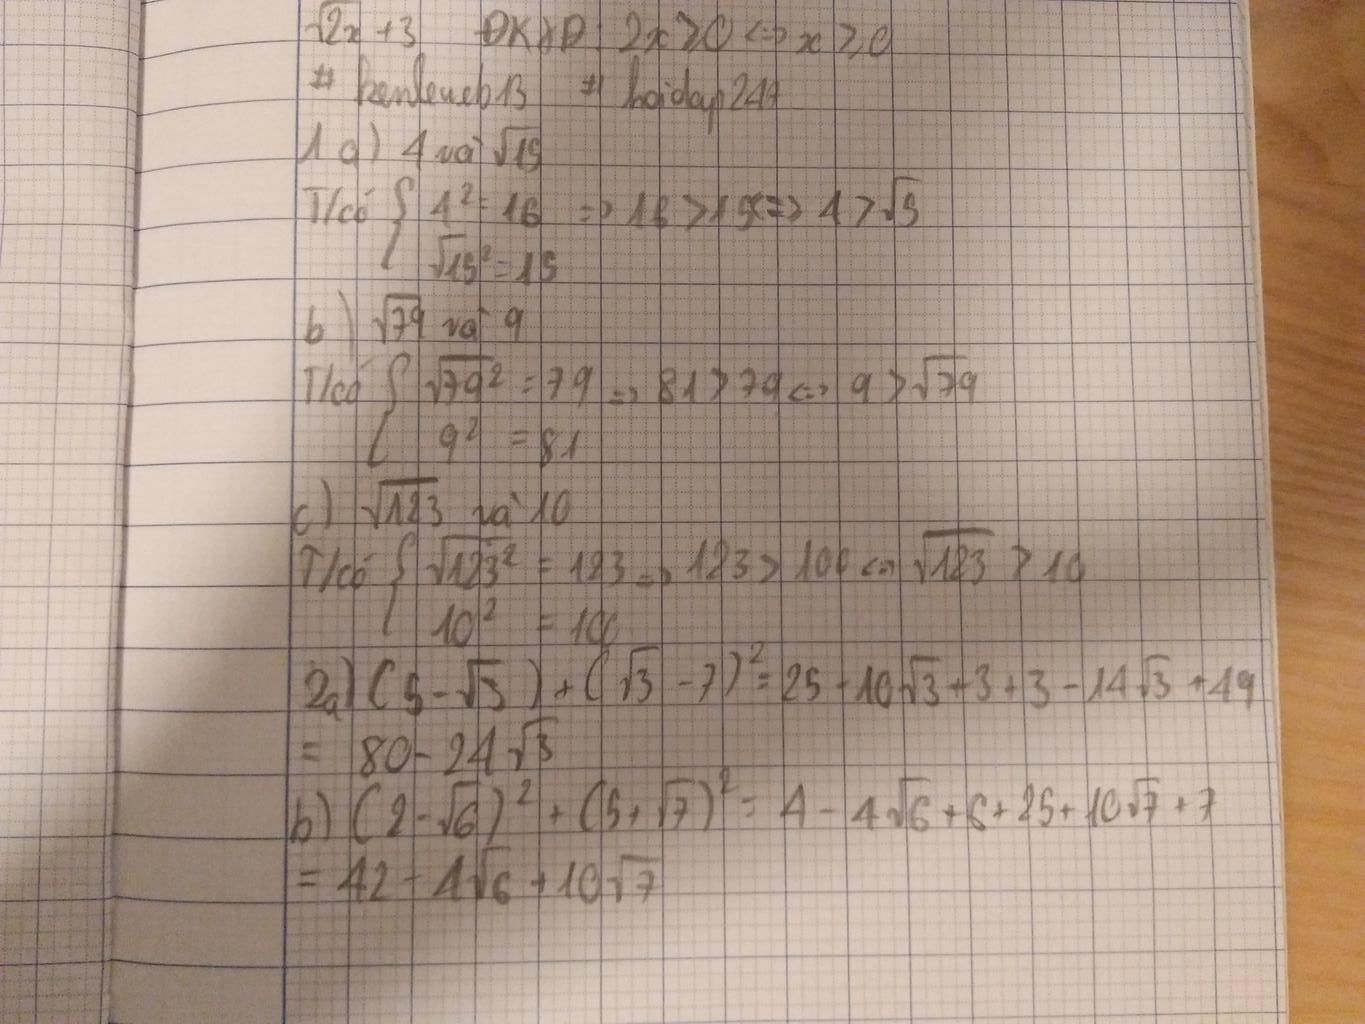 √2x + 3 ĐKXĐ: 2x ≥ 0 <=> x ≥ 0
# # hoidap247
1 a) 4 và √15
T/có { 4² = 16 => 16 > 15 <=> 4 > √5
√15² = 15
b) √79 và 9
T/có { √79² = 79 => 81 > 79 <=> 9 > √79
9² = 81
c) √123 và 10
T/có { √123² = 123 => 123 > 100 <=> √123 > 10
10² = 100
2a) (5 - √3) + (√3 - 7)² = 25 - 10√3 + 3 + 3 - 14√3 + 49
= 80 - 24√3
b) (2 - √6)² + (5 + √7)² = 4 - 4√6 + 6 + 25 + 10√7 + 7
= 42 - 4√6 + 10√7